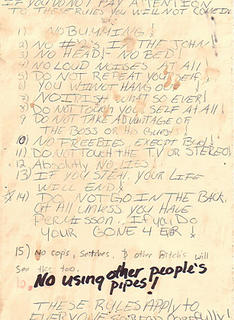 IF YOU DO NOT PAY ATTENTION
TO THESE RULES YOU WILL NOT COME IN
1) NO BUMMING!
2) NO #2'S IN THE JOHN!
3) NO HEAD, NO BED!
4) NO LOUD NOISES AT ALL!
5) DO NOT REPEAT YOUR SELF
6) YOU WILL NOT HANG OUT
7) NO WHAT SO EVER!
8) DO NOT TOUCH YOUR SELF AT ALL
9 DO NOT TAKE ADVANTAGE OF
THE BOSS OR HIS
10 NO FREEBIES, EXCEPT
11) DO NOT TOUCH THE TV OR STEREO!
12 Absolutly NO LIES!
13 IF YOU STEAL, YOUR LIFE
WILL END!
14) DO NOT GO IN THE BACK
AT ALL UNLESS YOU HAVE
PERMISSON. IF YOU DO
YOUR GONE 4 EVER!
15) No cops, & other Bitch's will
See this too.
No using other people's
pipes!
THESE RULES APPLY TO
EVERYONE SO READ CAREFULLY!